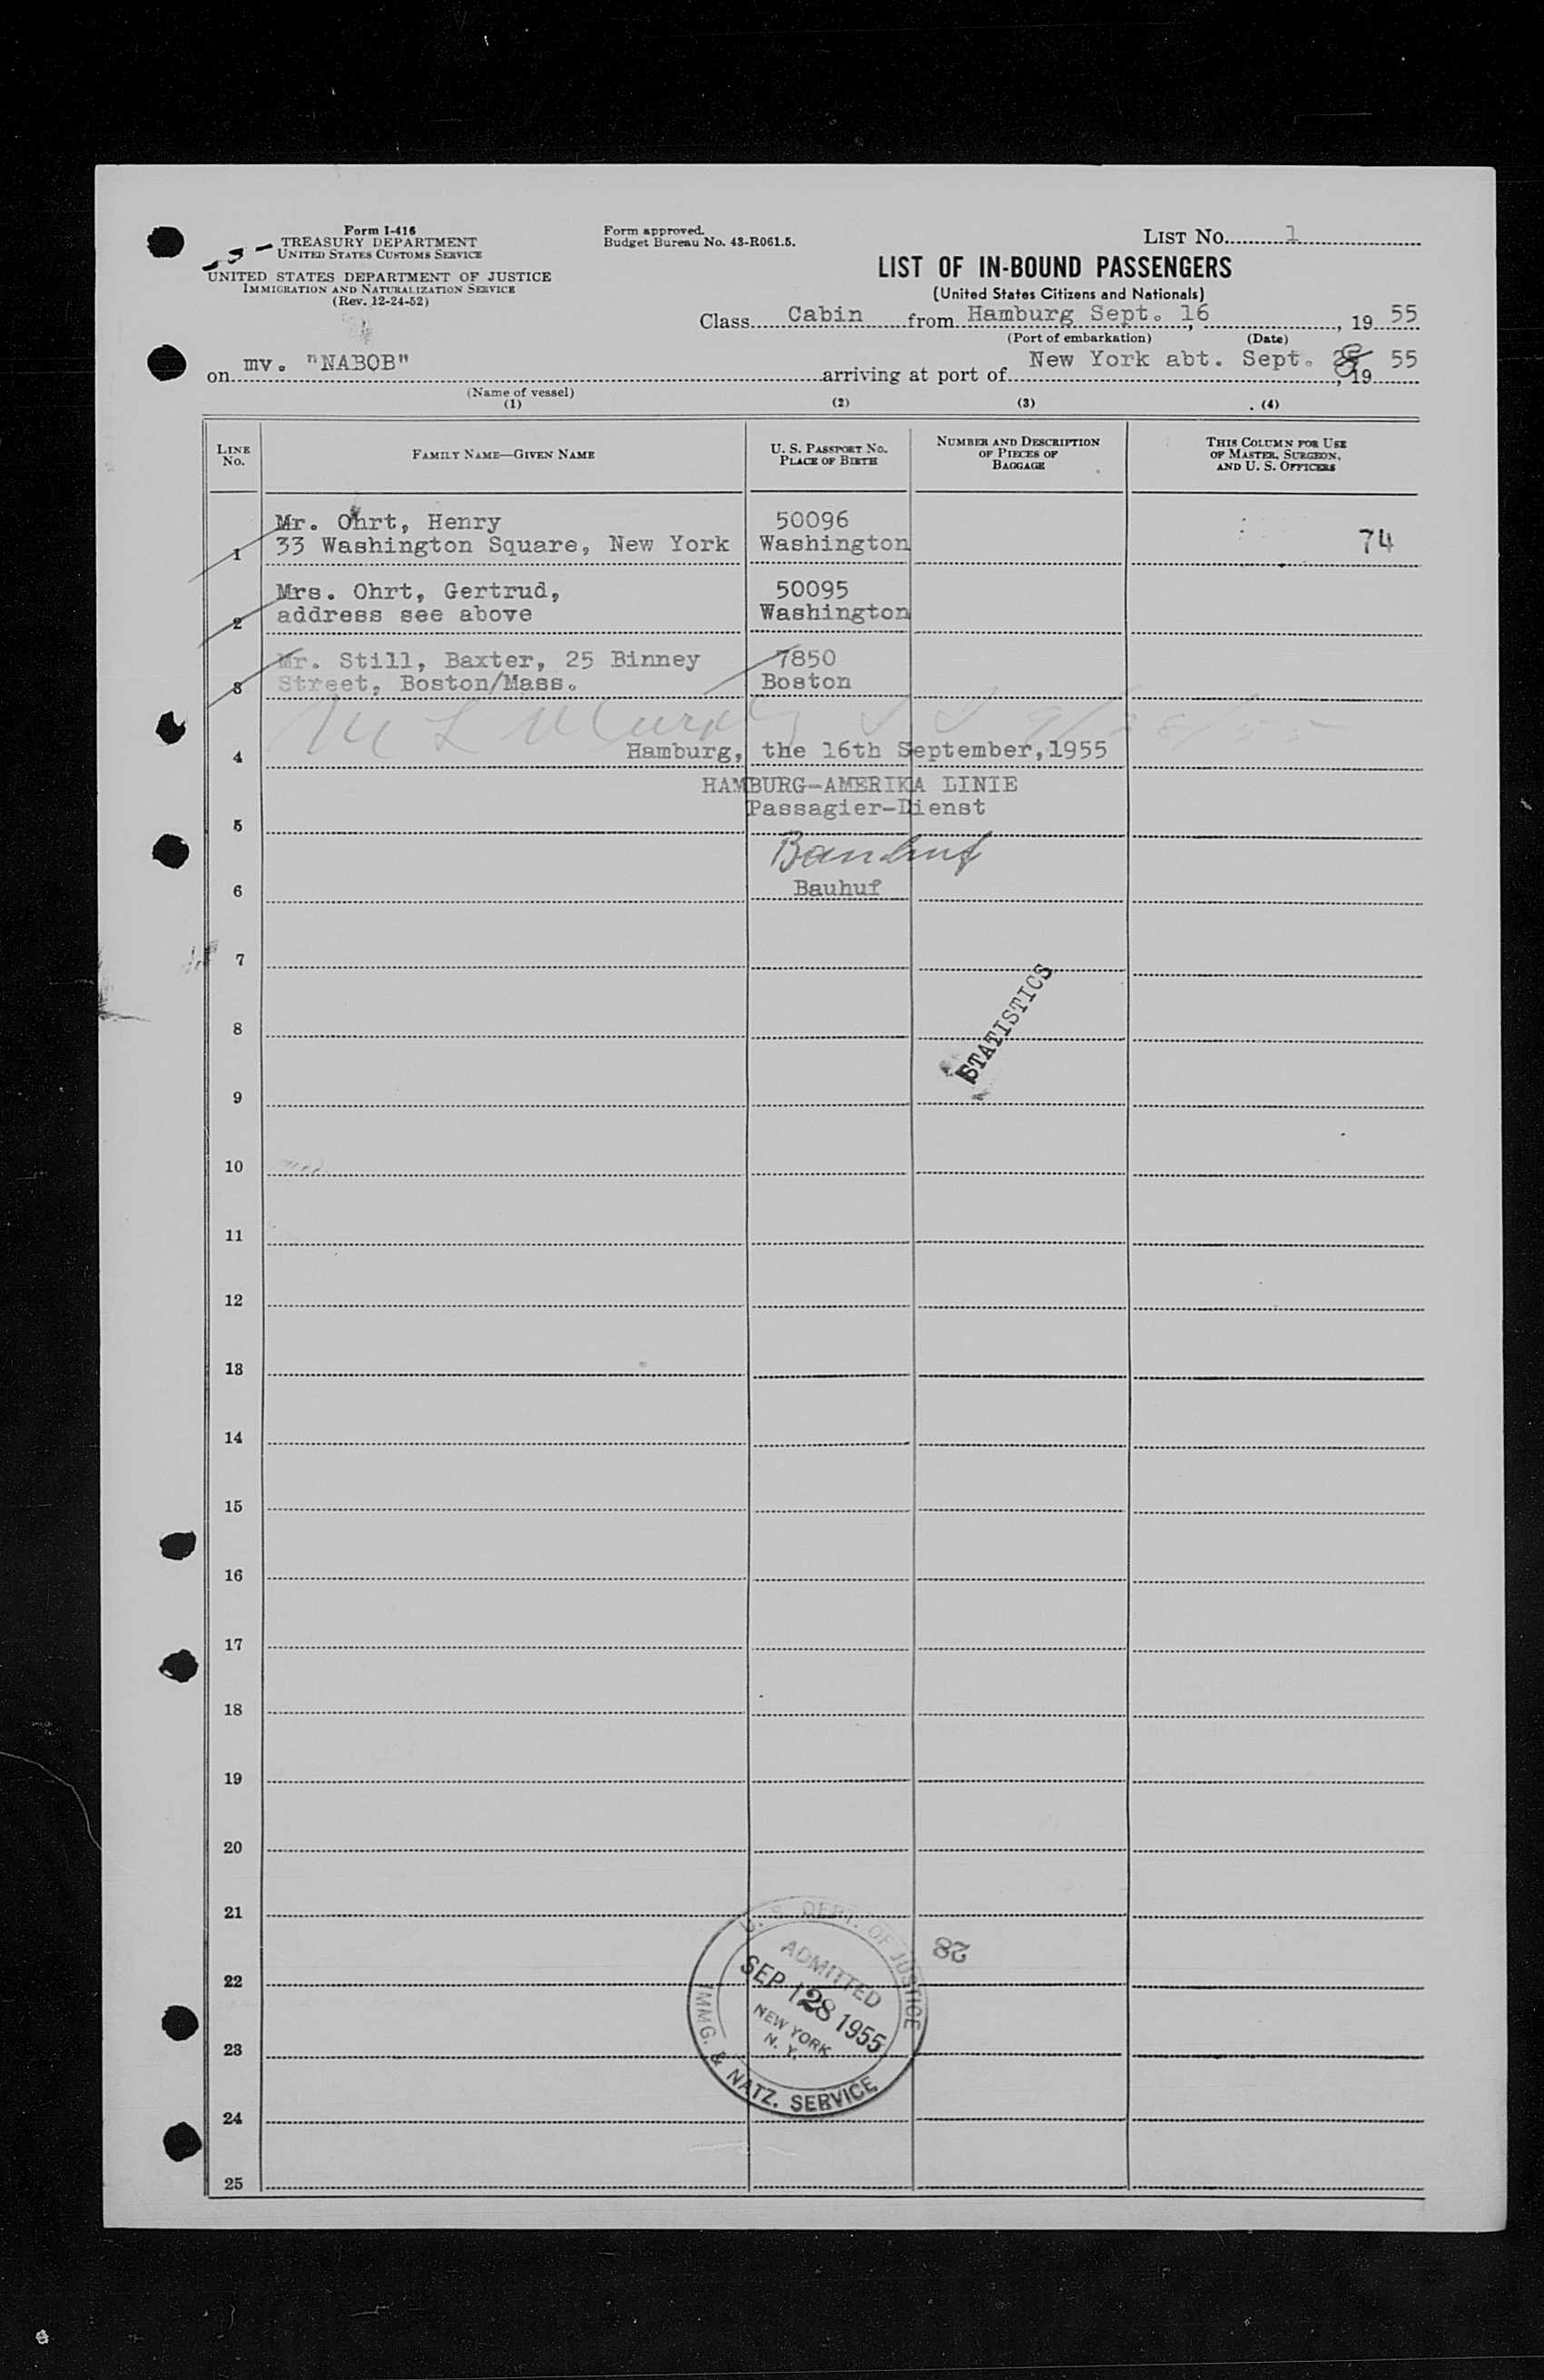 Form I-416
TREASURY DEPARTMENT
UNITED STATES CUSTOMS SERVICE
UNITED STATES DEPARTMENT OF JUSTICE
IMMIGRATION AND NATURALIZATION SERVICE
(Rev. 12-24-52)
Form approved.
Budget Bureau No. 43-R061.5.
LIST NO. 1
LIST OF IN-BOUND PASSENGERS
(United States Citizens and Nationals)
Class Cabin from Hamburg Sept. 16, 1955
(Port of embarkation) (Date)
on mv. "NABOB" arriving at port of New York abt. Sept. , 1955
(Name of vessel)
(1) (2) (3) (4)
LINE NO.
FAMILY NAME—GIVEN NAME
U. S. PASSPORT NO.
PLACE OF BIRTH
NUMBER AND DESCRIPTION
OF PIECES OF
BAGGAGE
THIS COLUMN FOR USE
OF MASTER, SURGEON,
AND U. S. OFFICERS
Mr. Ohrt, Henry 50096
1 33 Washington Square, New York Washington 74
Mrs. Ohrt, Gertrud, 50095
2 address see above Washington
Mr. Still, Baxter, 25 Binney 7850
3 Street, Boston/Mass. Boston
M L Murphy 9/28/55
4 Hamburg, the 16th September, 1955
HAMBURG-AMERIKA LINIE
Passagier-Dienst
5
Bauhuf
6 Bauhuf
7
STATISTICS
8
9
10
11
12
13
14
15
16
17
18
19
20
21
22
23
24
25
U. S. DEPT. OF JUSTICE
ADMITTED
SEP 28 1955
NEW YORK
N. Y.
IMMG. & NATZ. SERVICE
28